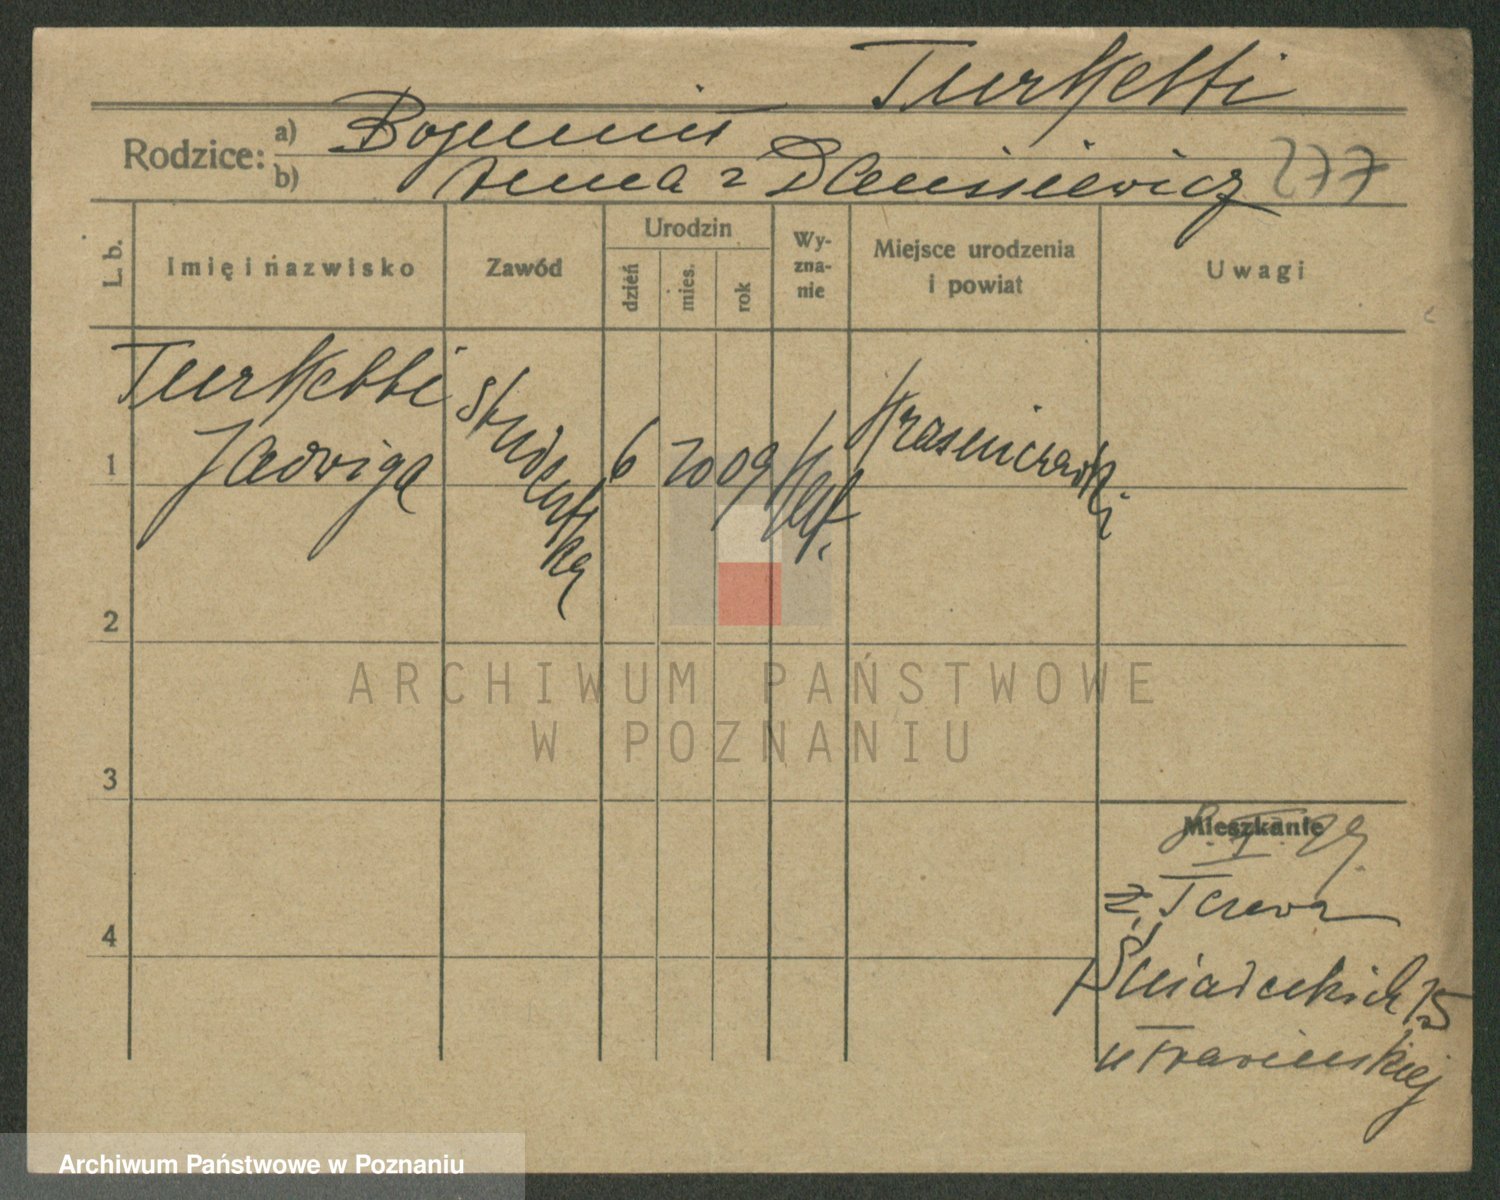 Turketti
Rodzice: a) Bogumił
b) Anna z Danisiewicz 277
L. b.
Imię i nazwisko
Zawód
Urodzin
dzień
mies.
rok
Wy-
zna-
nie
Miejsce urodzenia
i powiat
Uwagi
1
Turketti
Jadwiga
studentka
6
10
09
Kat.
2
3
4
Mieszkanie
z Torunia
Śniadeckich 15
u
ARCHIWUM PAŃSTWOWE
W POZNANIU
Archiwum Państwowe w Poznaniu